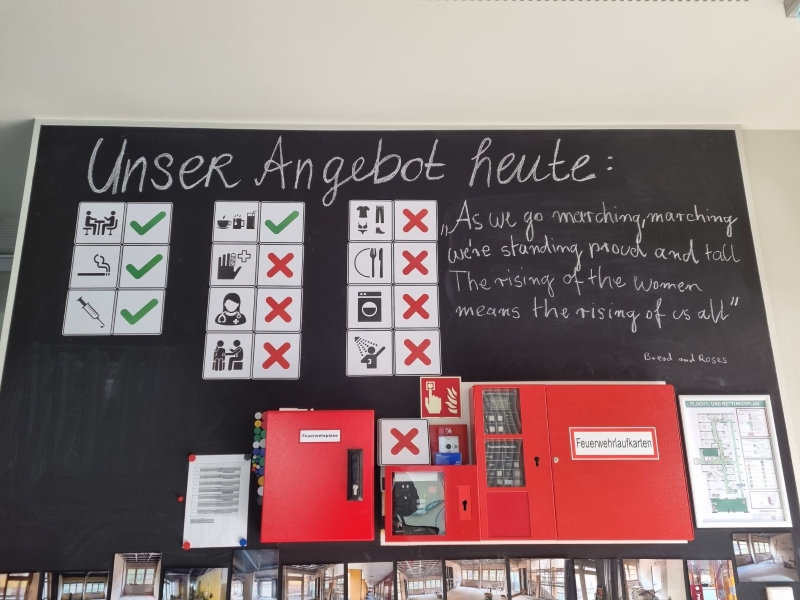 Unser Angebot heute:
„As we go marching, marching
we're standing proud and tall
The rising of the women
means the rising of us all"
Bread and Roses
Feuerwehrpläne
Feuerwehrlaufkarten
FLUCHT- UND RETTUNGSPLAN